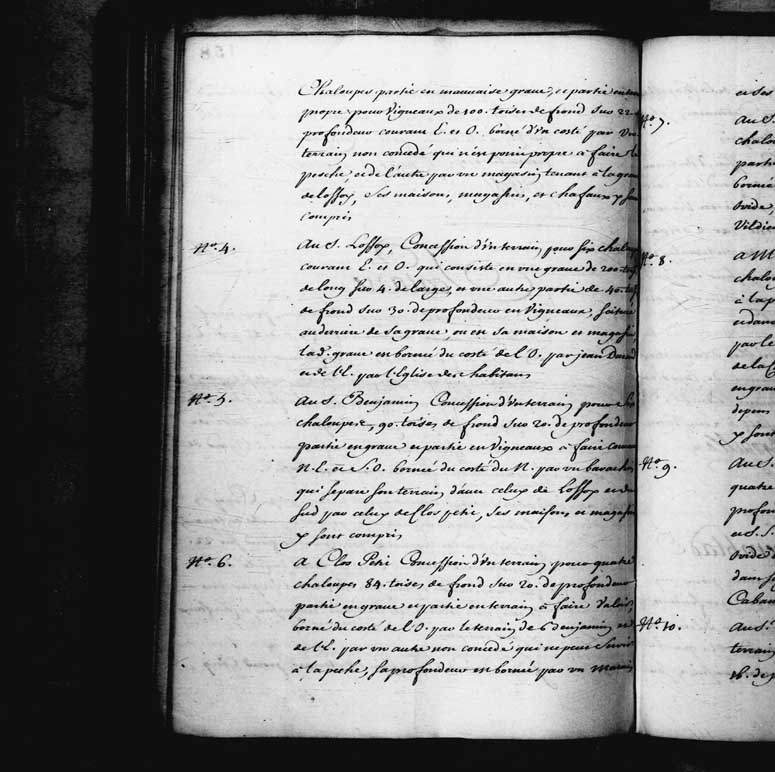 Chaloupes partie en mauvaise grave, et partie en
propre pour Vigneaux de 100. toises de frond Sur 22.
profondeur courant E. et O. borné d'un costé par un
terrain non concedé qui n'est point propre a faire la
pesche, et de l'autre par un magasin tenant à la grave
de Lossoy, Ses maison, magasin, et chafaux y sont
compris
No. 4.
Au S. Lossoy, Concession d'un terrain pour six
courant E. et O. qui consiste en une grave de 200.
de long Sur 4. de large, et une autre partie de 40.
de frond Sur 30. de profondeur en Vigneaux,
au derriere de Sa grave, ou est Sa maison et magasin,
lad. grave est borné du costé de l'O. par jean
et de l'E. par l'Eglise des habitans
No. 5.
Au S. Benjamin Concession d'un terrain pour
chaloupes, 90. toises de frond Sur 20. de profondeur
partie en grave et partie en Vigneaux a faire courant
N. E. et S. O. borné du costé du N. par un barachois
qui Separe Son terrain d'avec celuy de Lossoy et du
Sud par celuy de Clos petit, Ses maison et magasin
y Sont compris
No. 6.
A Clos Petit Concession d'un terrain pour quatre
chaloupes 84. toises de frond Sur 20. de profondeur
partie en grave et partie en terrain a faire Valoir,
borné du costé de l'O. par le terrain de benjamin et
de l'E. par un autre non concedé qui ne peut Servir
à la pesche, Sa profondeur est bornée par un marais
et Ses
No. 7.
Au S.
chalou
partie
borné
Ovide,
Vildieu
No. 8.
A M
chalou
à la p
et dans
par le
de la
en grav
depens
y sont
No. 9.
Au S.
quatre
profon
et S.
Ovide
dans S
Caban
No. 10.
Au S.
terrain
16. de p